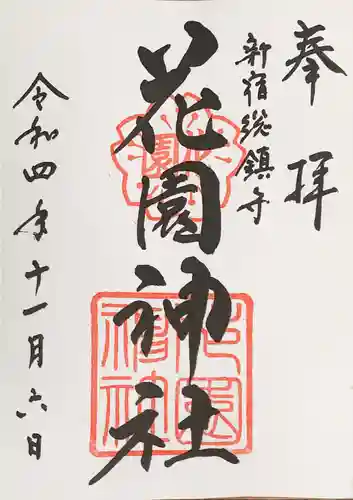 奉拝
新宿総鎮守
花園神社
令和四年十一月六日
園
花園神社